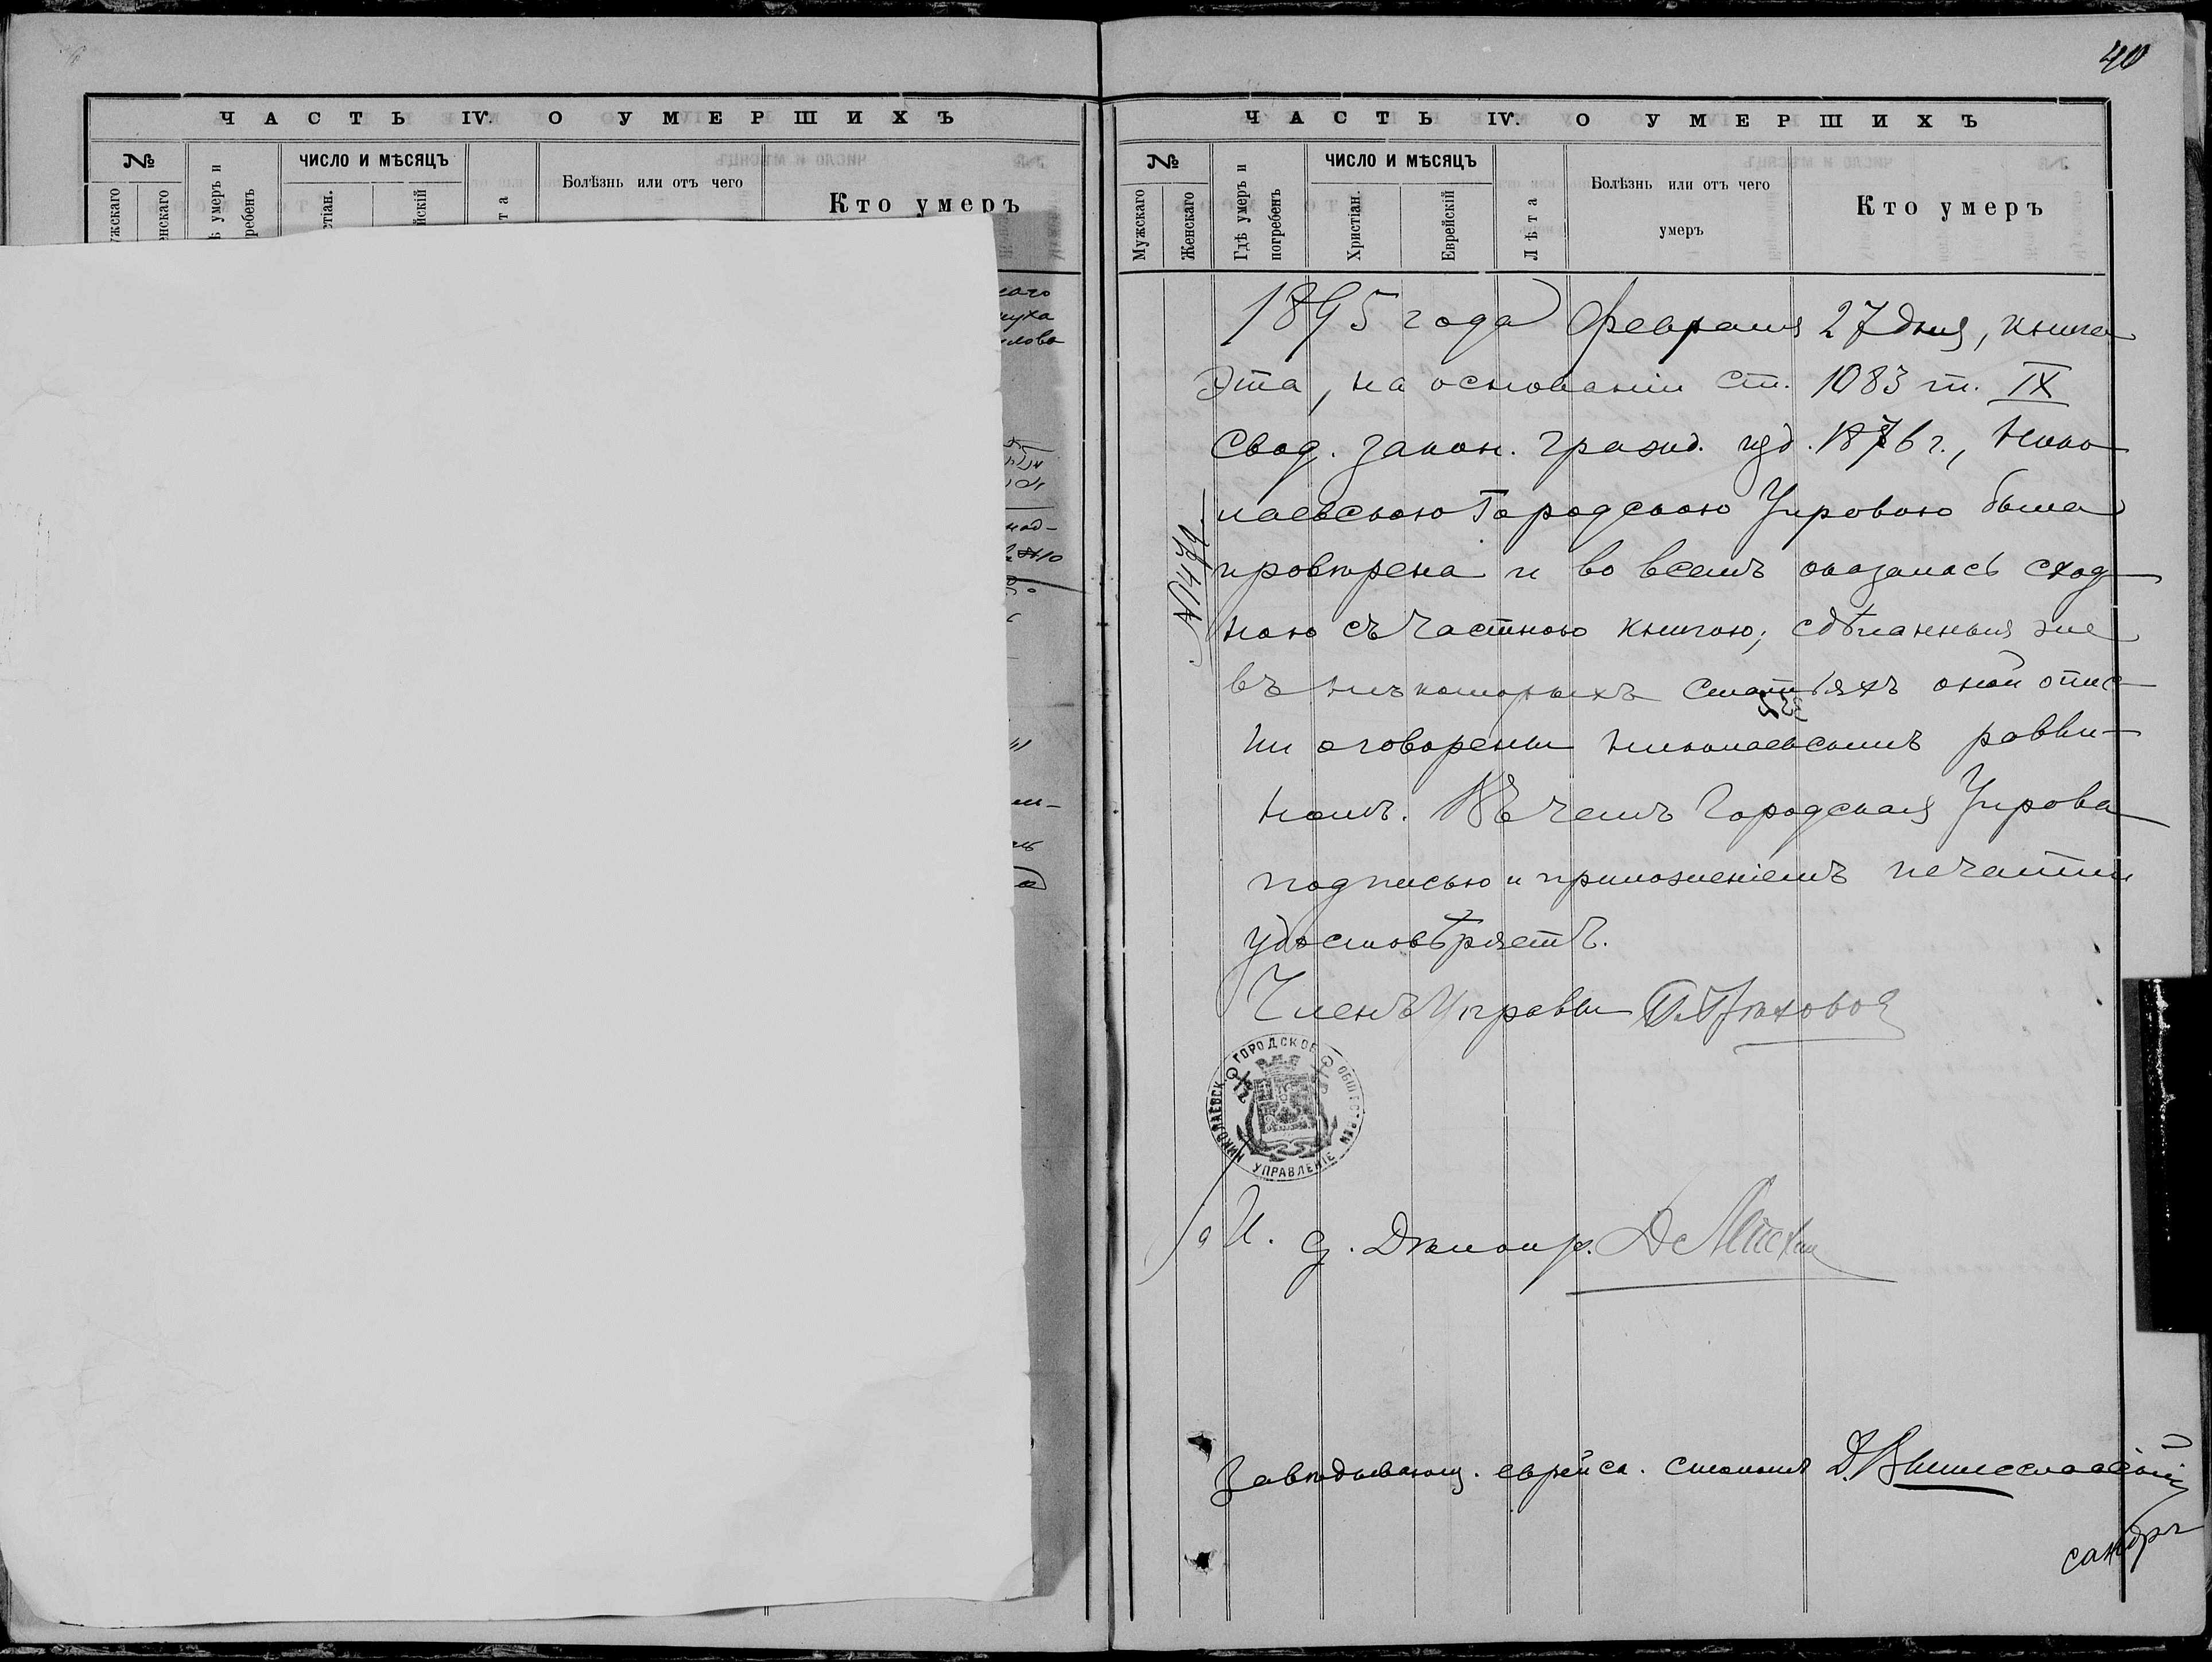 ЧАСТЬ IV. О УМЕРШИХЪ
№
ЧИСЛО И МѢСЯЦЪ
Болѣзнь или отъ чего
Кто умеръ
40
ЧАСТЬ IV. О УМЕРШИХЪ
№
Мужскаго
Женскаго
Гдѣ умеръ и
погребенъ
ЧИСЛО И МѢСЯЦЪ
Христіан.
Еврейскій
Лѣта
Болѣзнь или отъ чего
умеръ
Кто умеръ
1895 года Февраля 27 дня, книга
эта, на основаніи ст. 1083 т. IX
Свод. закон. гражд. изд. 1876 г., Нико
лаевскою Городскою Управою была
провѣрена и во всемъ оказалась сход
ною съ частною книгою; сдѣланныя же
въ нѣкоторыхъ статьяхъ оной опис
ки оговорены николаевскимъ равви-
номъ. Въ чемъ Городская Управа
подписью и приложеніемъ печати
удостовѣряетъ.
Членъ Управы
НИКОЛАЕВСК. ГОРОДСКОЕ ОБЩЕСТВЕН. УПРАВЛЕНІЕ
И. д. Дѣлопр.
Завѣдывающ. еврейск. столомъ